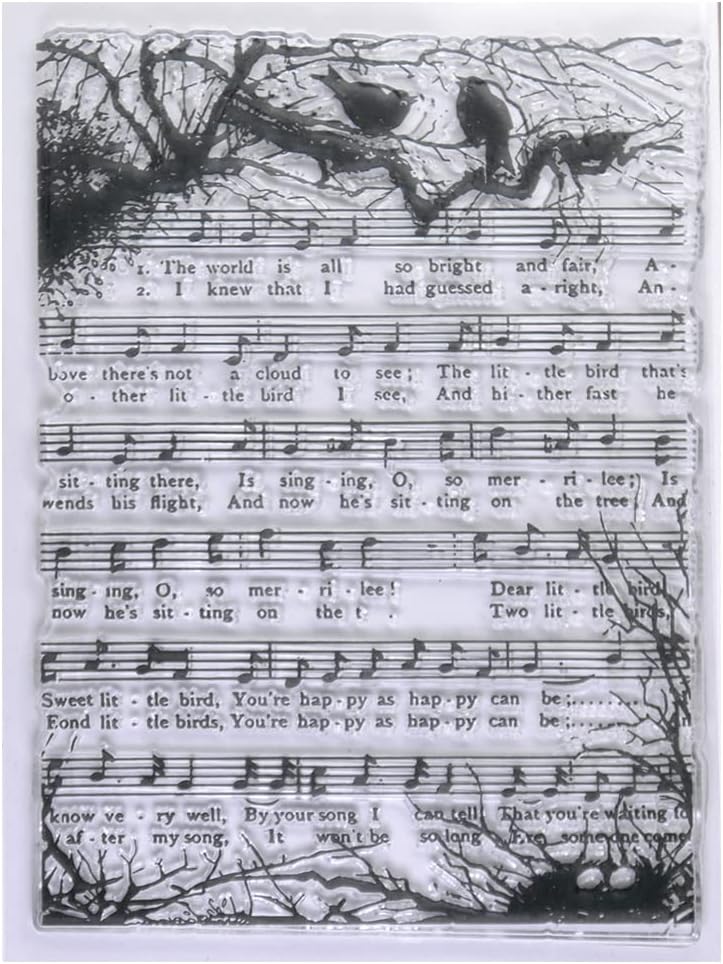 1. The world is all so bright and fair, A -
2. I knew that I had guessed a - right, An -
bove there's not a cloud to see; The lit - tle bird that's
o - ther lit - tle bird I see, And hi - ther fast he
sit - ting there, Is sing - ing, O, so mer - ri - lee; Is
wends his flight, And now he's sit - ting on the tree, And
sing - ing, O, so mer - ri - lee! Dear lit - tle bird,
now he's sit - ting on the t . Two lit - tle birds,
Sweet lit - tle bird, You're hap - py as hap - py can be;........
Fond lit - tle birds, You're hap - py as hap - py can be;........
know ve - ry well, By your song I can tell, That you're waiting fo
af - ter my song, It won't be so long Ere some one come